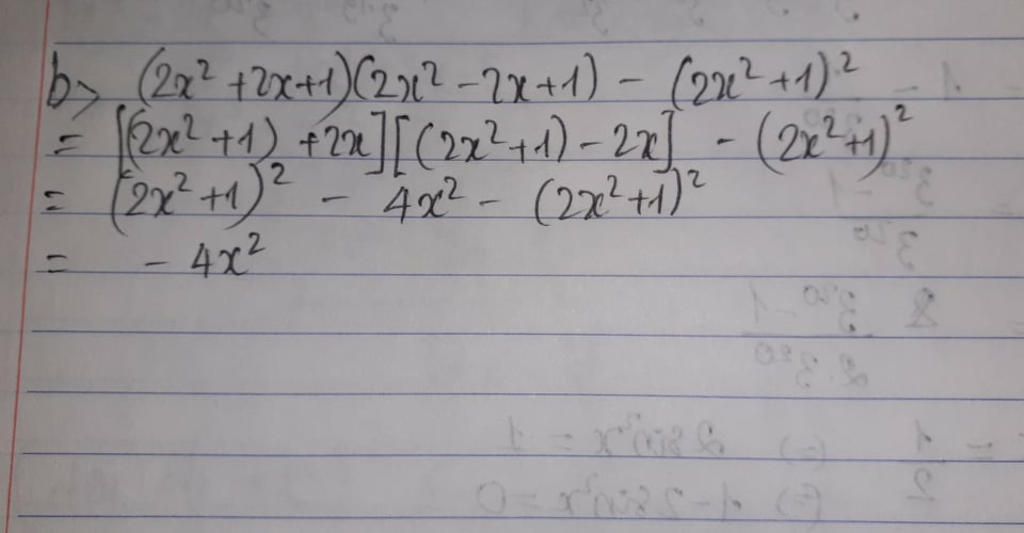 b> (2x² + 2x + 1)(2x² - 2x + 1) - (2x² + 1)²
= [(2x² + 1) + 2x][(2x² + 1) - 2x] - (2x² + 1)²
= (2x² + 1)² - 4x² - (2x² + 1)²
= - 4x²